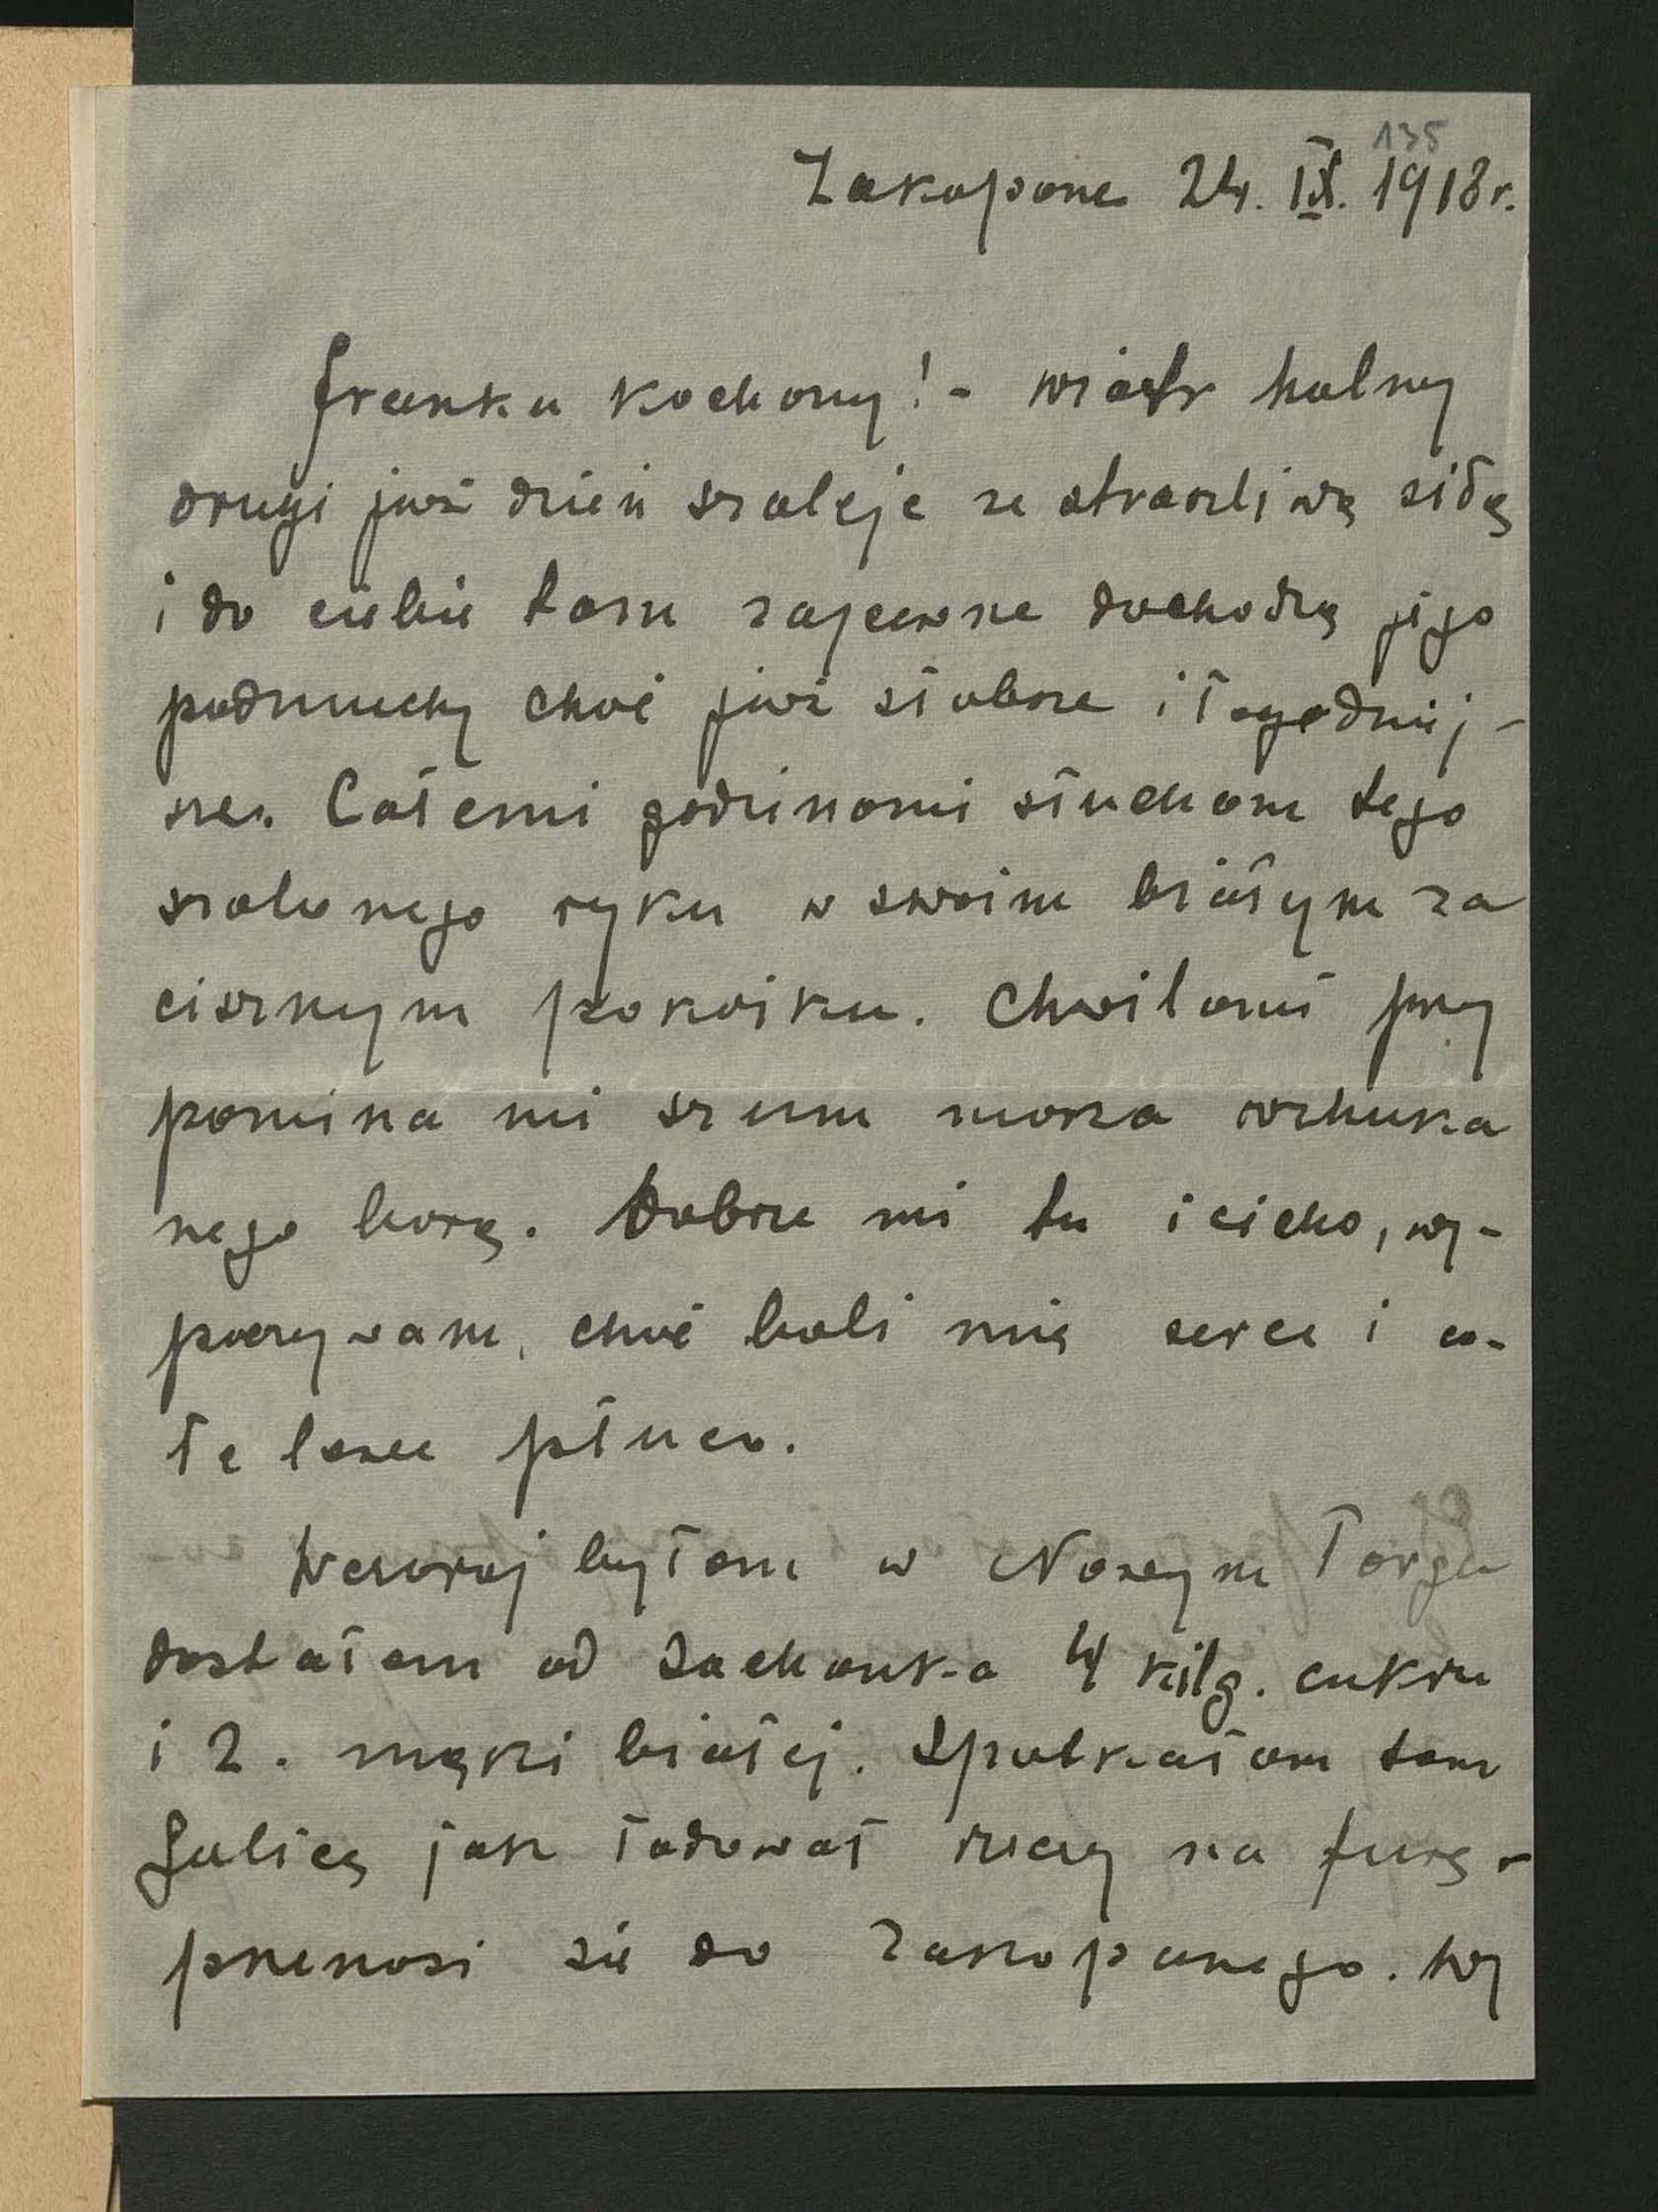 135
Zakopane 24. IX. 1918 r.
Franku kochany! - wiatr halny
drugi już dzień szaleje ze straszliwą siłą
i do ciebie tam zapewne dochodzą jego
podmuchy choć już słabsze i łagodniej-
sze. Całemi godzinami słucham tego
szalonego ryku w swoim białym za
cisznym pokoiku. Chwilami przy
pomina mi szum morza wzhuka
nego borą. Dobrze mi tu i cicho, wy-
poczywam, choć boli mię serce i ca-
łe lewe płuco.
Wczoraj byłam w Nowym Targu
dostałam od Zachanka 4 kilg. cukru
i 2. mąki białej. Spotkałam tam
Galicę jak ładował rzeczy na furę -
przenosi się do Zakopanego. Wy